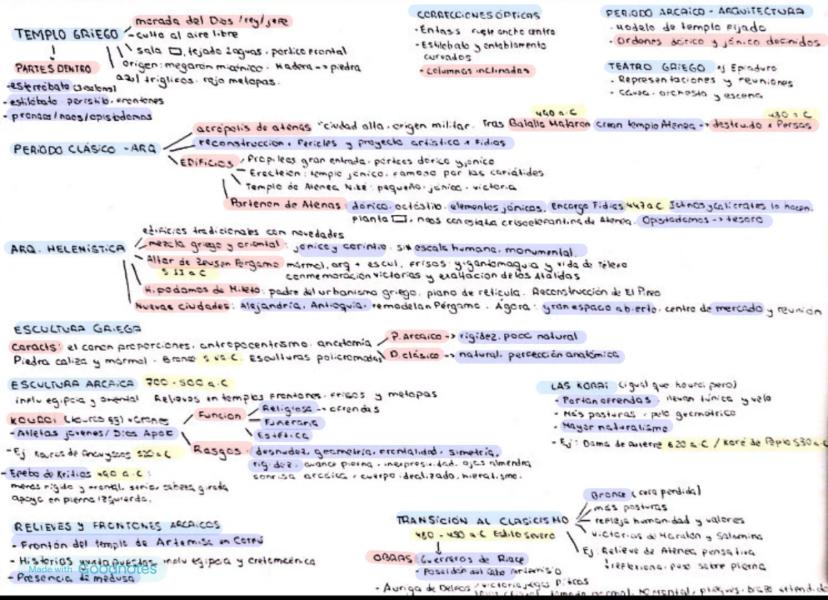 TEMPLO GRIEGO
morada del Dios / rey / jefe
- culto al aire libre
sala, tejado 2 aguas, portico frontal
Origen: megaron micénico. Madera → piedra
azul triglifos. rojo metopas.
PARTES DENTRO
- estilóbato peristilo. frontones
- pronaos/naos/opistodomos
CORRECCIONES ÓPTICAS
- Éntasis
- Estilobato y entablamento
curvados
- Columnas inclinadas
PERIODO ARCAICO - ARQUITECTURA
- Modelo de templo fijado
- Ordenes dórico y jónico definidos
TEATRO GRIEGO ej Epidauro
- Representaciones y reuniones
- Cávea, orchestra y escena
PERIODO CLÁSICO - ARQ
acrópolis de atenas "ciudad alta, origen militar. Tras Batalla Maratón crean templo Atenea → destruido x Persas
490 a.C
480 a.C
reconstrucción, Pericles y proyecto artístico x Fidias
EDIFICIOS
Propileos gran entrada, pórticos dorico y jonico
Erecteion: templo jónico, famoso por las cariátides
Templo de Atenea Niké: pequeño, jónico, victoria
Partenon de Atenas
dórico, octástilo, elementos jónicos, encargo Fidias 447 a.C Ictinos y Calícrates lo hacen.
planta, naos con estatua crisoelefantina de Atenea. Opistodomos → tesoro
ARQ. HELENÍSTICA
edificios tradicionales con novedades
mezcla griego y oriental: jonico y corintio. sin escala humana, monumental.
Altar de Zeus en Pergamo mármol, arq + escul, frisos: gigantomaquia y vida de Télefo
S II a C
conmemoración victorias y exaltación de los Atálidas
Hipodamos de Mileto: padre del urbanismo griego, plano de retícula. Reconstrucción de El Pireo
Nuevas ciudades: Alejandría, Antioquía, remodelan Pérgamo. Ágora: gran espacio abierto, centro de mercado y reunión
ESCULTURA GRIEGA
Caracts: el canon proporciones, antropocentrismo, anatomía
P. arcaico → rigidez, poco natural
Piedra caliza y mármol. Bronce S V a.C. Esculturas policromadas
P. clásico → natural, perfección anatómica
ESCULTURA ARCAICA 700 - 500 a.C
influ egipcia y oriental Relieves en templos frontones, frisos y metopas
KOUROI (kouros sg) varones
- Atletas jóvenes / Dios Apolo
Función
Religiosa → ofrendas
Funeraria
Estética
Rasgos
desnudez, geometría, frontalidad, simetría,
rigidez, avance pierna, inexpresividad, ojos almendra
sonrisa arcaica, cuerpo idealizado, hieratismo.
- Ej Kouros de Anavyssos 520 a C
- Efebo de Kritios 480 a.C:
menos rígido y frontal, serio, cabeza girada
apoyo en pierna izquierda.
LAS KORAI (igual que kouroi pero)
- Portan ofrendas llevan túnica y velo
- Más posturas, pelo geometrico
- Mayor naturalismo
- Ej: Dama de Auxerre 620 a.C / Koré de Peplo 530 a.C
RELIEVES Y FRONTONES ARCAICOS
- Frontón del templo de Artemisa en Corfú
- Historias yuxtapuestas influ egipcia y cretomicénica
- Presencia de medusa
Made with Goodnotes
TRANSICIÓN AL CLASICISMO
480 - 450 a.C Estilo severo
Bronce (cera perdida)
más posturas
refleja humanidad y valores
victorias de Maratón y Salamina
Ej. Relieve de Atenea pensativa
OBRAS
Guerreros de Riace
- Poseidon del Cabo Artemisio
- Auriga de Delfos